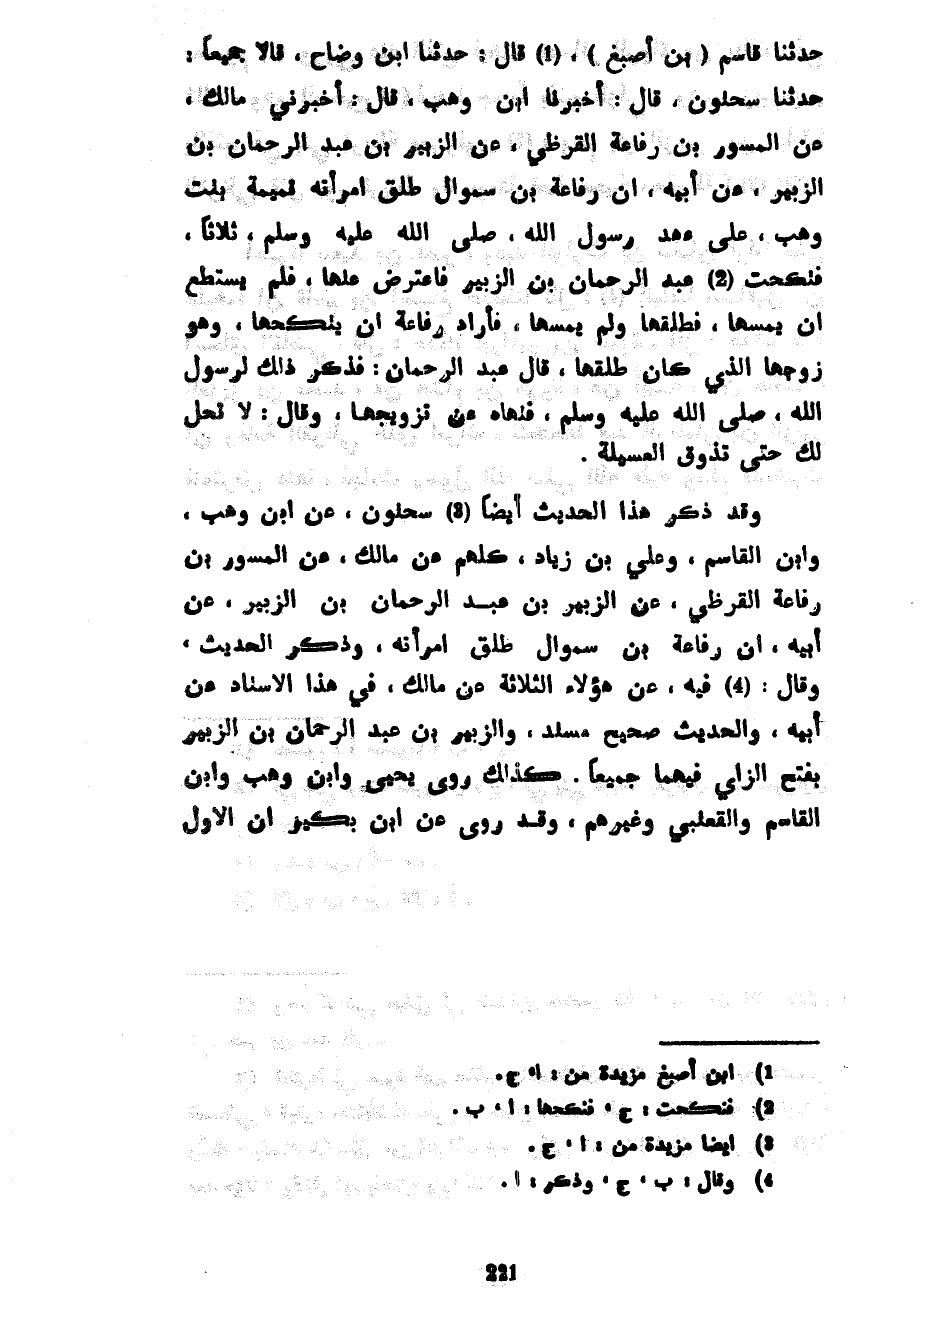 حدثنا قاسم ( بن أصبغ ) ، (1) قال : حدثنا ابن وضاح ، قالا جميعاً :
حدثنا سحلون ، قال : أخبرنا ابن وهب ، قال : أخبرني مالك ،
عن المسور بن رفاعة القرظي ، عن الزبير بن عبد الرحمان بن
الزبير ، عن أبيه ، ان رفاعة بن سموال طلق امرأته تميمة بنت
وهب ، على عهد رسول الله ، صلى الله عليه وسلم ، ثلاثاً ،
فنكحت (2) عبد الرحمان بن الزبير فاعترض عنها ، فلم يستطع
ان يمسها ، فطلقها ولم يمسها ، فأراد رفاعة ان ينكحها ، وهو
زوجها الذي كان طلقها ، قال عبد الرحمان : فذكر ذلك لرسول
الله ، صلى الله عليه وسلم ، فنهاه عن تزويجها ، وقال : لا تحل
لك حتى تذوق العسيلة .
وقد ذكر هذا الحديث أيضاً (3) سحلون ، عن ابن وهب ،
وابن القاسم ، وعلي بن زياد ، كلهم عن مالك ، عن المسور بن
رفاعة القرظي ، عن الزبير بن عبد الرحمان بن الزبير ، عن
أبيه ، ان رفاعة بن سموال طلق امرأته ، وذكر الحديث ،
وقال : (4) فيه ، عن هؤلاء الثلاثة عن مالك ، في هذا الاسناد عن
أبيه ، والحديث صحيح مسند ، والزبير بن عبد الرحمان بن الزبير
بفتح الزاي فيهما جميعاً . كذلك روى يحيى وابن وهب وابن
القاسم والقعنبي وغيرهم ، وقد روى عن ابن بكير ان الاول
1) ابن أصبغ مزيدة من : ا ، ج .
2) فنكحت : ج ، فنكحها : ا ، ب .
3) ايضا مزيدة من : ا ، ج .
4) وقال : ب ، ج ، وذكر : ا .
221